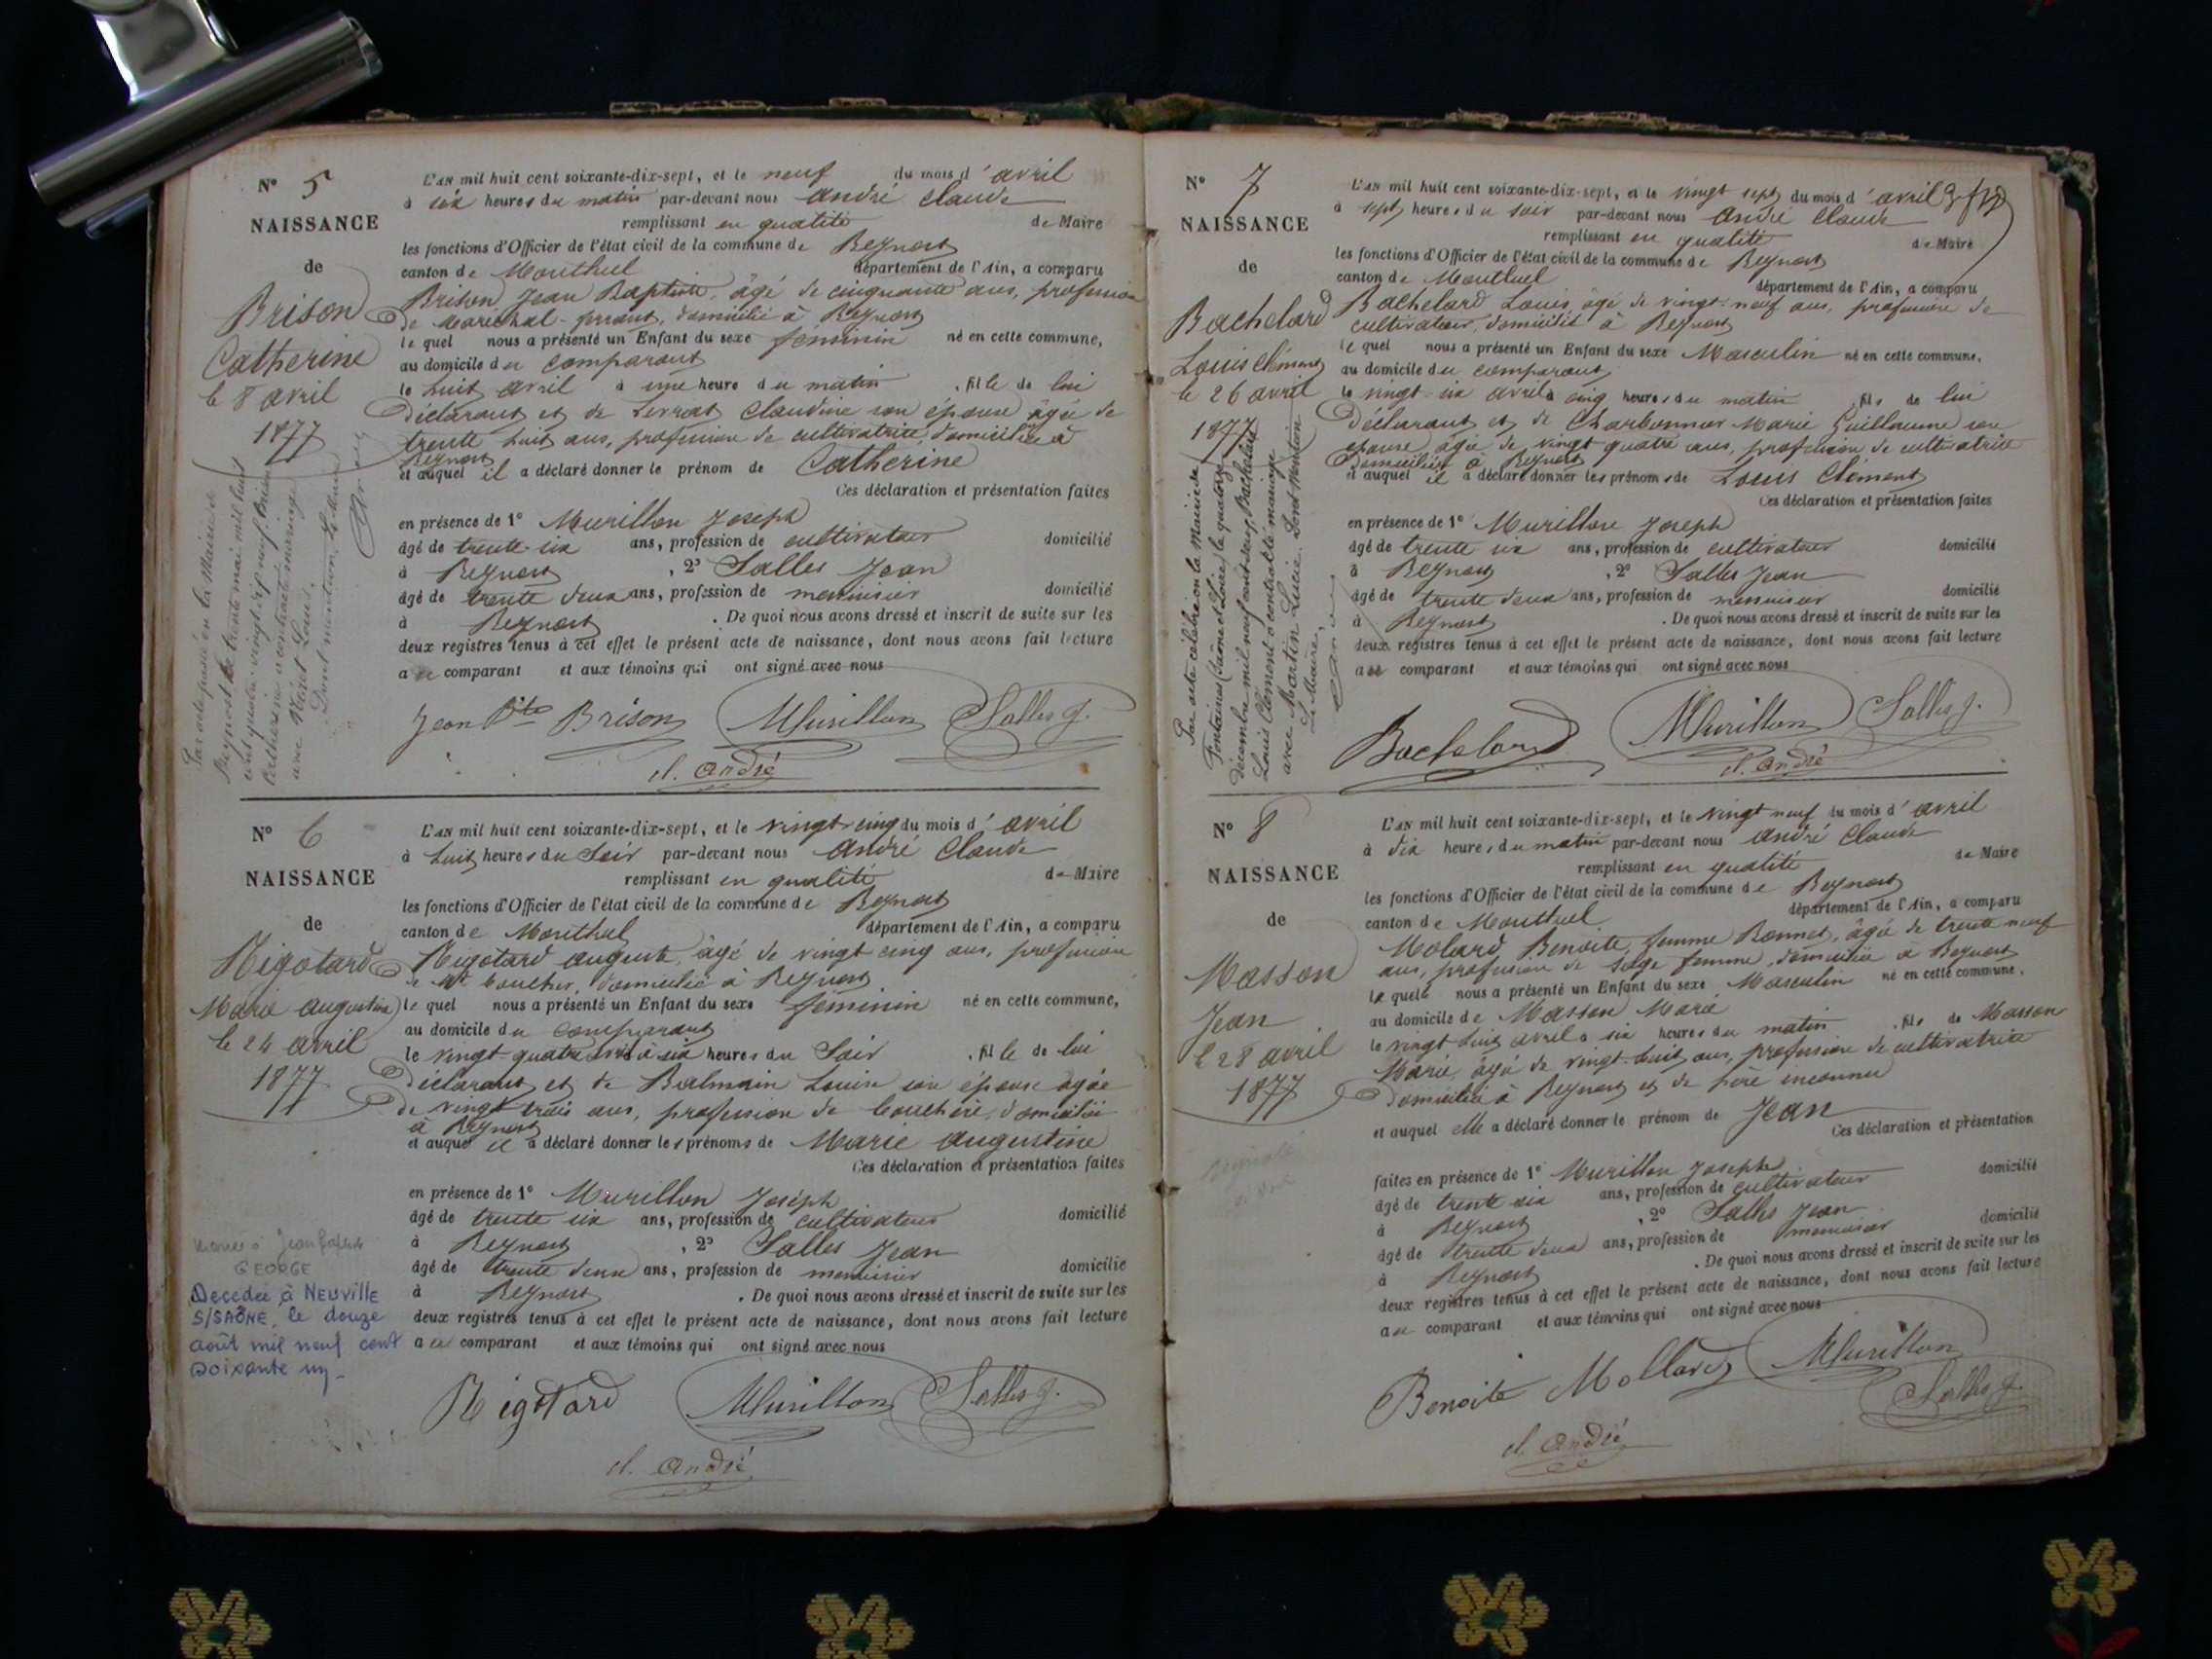 N° 5
NAISSANCE
de
Brison
Catherine
le 8 avril
1877
L'AN mil huit cent soixante-dix-sept, et le neuf du mois d'avril
à six heures du matin par-devant nous André Claude
remplissant en qualité de Maire
les fonctions d'Officier de l'état civil de la commune de Beynost
canton de Montluel département de l'Ain, a comparu
Brison Jean Baptiste, âgé de cinquante ans, profession
de maréchal-ferrant, domicilié à Beynost
le quel nous a présenté un Enfant du sexe féminin né en cette commune,
au domicile du comparant
le huit avril à une heure du matin, fille de lui
Déclarant et de Levrat Claudine son épouse âgée de
trente huit ans, profession de cultivatrice, domiciliée à
Beynost
et auquel il a déclaré donner le prénom de Catherine
Ces déclaration et présentation faites
en présence de 1° Murillon Joseph
âgé de trente six ans, profession de cultivateur domicilié
à Beynost, 2° Salles Jean
âgé de trente deux ans, profession de menuisier domicilié
à Beynost. De quoi nous avons dressé et inscrit de suite sur les
deux registres tenus à cet effet le présent acte de naissance, dont nous avons fait lecture
au comparant et aux témoins qui ont signé avec nous
Jean Bte Brison Murillon Salles J.
cl. André
Par acte passé en la Mairie de
Beynost le trente mai mil huit
cent quatre-vingt dix neuf Brison
Catherine a contracté mariage
avec Louis.
Dont mention, Le Maire
N° 6
NAISSANCE
de
Rigotard
Marie augustine
le 24 avril
1877
L'AN mil huit cent soixante-dix-sept, et le vingt-cinq du mois d'avril
à huit heures du soir par-devant nous André Claude
remplissant en qualité de Maire
les fonctions d'Officier de l'état civil de la commune de Beynost
canton de Montluel département de l'Ain, a comparu
Rigotard auguste, âgé de vingt cinq ans, profession
de boucher, domicilié à Beynost
le quel nous a présenté un Enfant du sexe féminin né en cette commune,
au domicile du comparant
le vingt-quatre avril à six heures du soir, fille de lui
Déclarant et de Balmain Louise son épouse âgée
de vingt trois ans, profession de bouchère, domiciliée
à Beynost
et auquel il a déclaré donner les prénoms de Marie augustine
Ces déclaration et présentation faites
en présence de 1° Murillon Joseph
âgé de trente six ans, profession de cultivateur domicilié
à Beynost, 2° Salles Jean
âgé de trente deux ans, profession de menuisier domicilié
à Beynost. De quoi nous avons dressé et inscrit de suite sur les
deux registres tenus à cet effet le présent acte de naissance, dont nous avons fait lecture
au comparant et aux témoins qui ont signé avec nous
Rigotard Murillon Salles J.
cl. André
GEORGE
Decedée à NEUVILLE
S/SAÔNE, le douze
août mil neuf cent
soixante un_
N° 7
NAISSANCE
de
Bachelard
Louis Clément
le 26 avril
1877
L'AN mil huit cent soixante-dix-sept, et le vingt sept du mois d'avril
à sept heures du soir par-devant nous André Claude
remplissant en qualité de Maire
les fonctions d'Officier de l'état civil de la commune de Beynost
canton de Montluel département de l'Ain, a comparu
Bachelard Louis, âgé de vingt-neuf ans, profession de
cultivateur, domicilié à Beynost
le quel nous a présenté un Enfant du sexe Masculin né en cette commune,
au domicile du comparant
le vingt-six avril à cinq heures du matin, fils de lui
Déclarant et de Charbonnier Marie Guillaume son
épouse, âgée de vingt quatre ans, profession de cultivatrice
domiciliée à Beynost
et auquel il a déclaré donner les prénoms de Louis Clément
Ces déclaration et présentation faites
en présence de 1° Murillon Joseph
âgé de trente six ans, profession de cultivateur domicilié
à Beynost, 2° Salles Jean
âgé de trente deux ans, profession de menuisier domicilié
à Beynost. De quoi nous avons dressé et inscrit de suite sur les
deux registres tenus à cet effet le présent acte de naissance, dont nous avons fait lecture
au comparant et aux témoins qui ont signé avec nous
Bachelard Murillon Salles J.
cl. André
Par acte célébré en la Mairie de
Fontaines (Saône et Loire) le quatorze
décembre mil neuf cent Bachelard
Louis Clément a contracté mariage
avec Martin Lucie. Dont Mention
Le Maire,
N° 8
NAISSANCE
de
Masson
Jean
le 28 avril
1877
L'AN mil huit cent soixante-dix-sept, et le vingt neuf du mois d'avril
à dix heures du matin par-devant nous André Claude
remplissant en qualité de Maire
les fonctions d'Officier de l'état civil de la commune de Beynost
canton de Montluel département de l'Ain, a comparu
Molard Benoite, femme Bonnet, âgée de trente neuf
ans, profession de sage femme, domiciliée à Beynost
la quelle nous a présenté un Enfant du sexe Masculin né en cette commune,
au domicile de Masson Marie
le vingt huit avril à six heures du matin, fils de Masson
Marie, âgé de vingt-huit ans, profession de cultivatrice
domiciliée à Beynost et de père inconnu
et auquel elle a déclaré donner le prénom de Jean
Ces déclaration et présentation
faites en présence de 1° Murillon Joseph
âgé de trente six ans, profession de cultivateur domicilié
à Beynost, 2° Salles Jean
âgé de trente deux ans, profession de menuisier domicilié
à Beynost. De quoi nous avons dressé et inscrit de suite sur les
deux registres tenus à cet effet le présent acte de naissance, dont nous avons fait lecture
au comparant et aux témoins qui ont signé avec nous
Benoite Mollard Murillon
Salles J.
cl. André